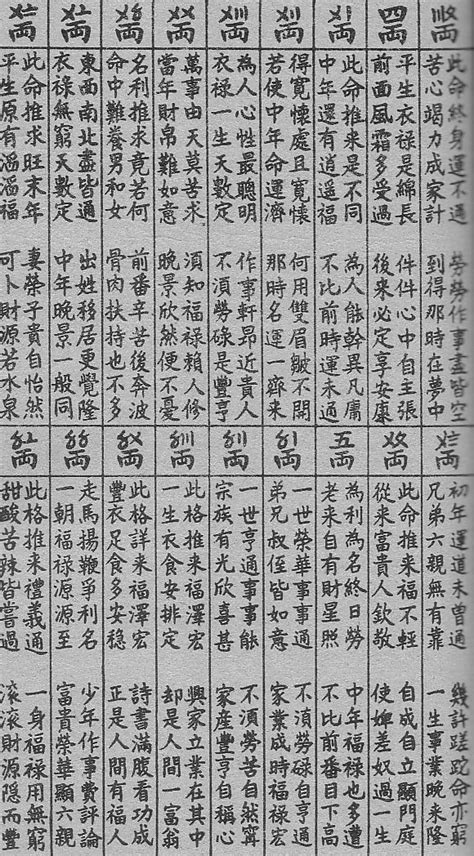 〣〩両
此命終身運不通 勞勞作事盡皆空
苦心竭力成家計 到得那時在夢中
四両
平生衣祿是綿長 件件心中自主張
前面風霜多受過 後來必定享安康
〤〡両
此命推來是不同 為人能幹異凡庸
中年還有逍遙福 不比前時運未通
〤〢両
得寬懷處且寬懷 何用雙眉皺不開
若使中年命運濟 那時名運一齊來
〤〣両
為人心性最聰明 作事軒昂近貴人
衣祿一生天數定 不須勞碌是豐亨
〤〤両
萬事由天莫苦求 須知福祿賴人修
當年財帛難如意 晚景欣然便不憂
〤〥両
名利推求竟若何 前番辛苦後奔波
命中難養男和女 骨肉扶持也不多
〤〦両
東西南北盡皆通 出姓移居更覺隆
衣祿無窮天數定 中年晚景一般同
〤〧両
此命推求旺末年 妻榮子貴自怡然
平生源有滔滔福 可卜財源若水泉
〤〨両
初年運道未曾通 幾許蹉跎命亦窮
兄弟六親無有靠 一生事業晚來隆
〤〩両
此命推來福不輕 自成自立顯門庭
從來富貴人欽敬 使婢差奴過一生
五両
為利為名終日勞 中年福祿也多遭
老來自有財星照 不比前番目下高
〥〡両
一世榮華事事通 不須勞碌自亨通
弟兄叔侄皆如意 家業成時福祿宏
〥〢両
一世亨通事事能 不須勞苦自然甯
宗族有光欣喜甚 家產豐亨自稱心
〥〣両
此格推來福澤宏 興家立業在其中
一生衣食安排定 却是人間一富翁
〥〤両
此格詳來福澤宏 詩書滿腹看功成
豐衣足食多安穩 正是人間有福人
〥〥両
走馬揚鞭爭利名 少年作事費評論
一朝福祿源源至 富貴榮華顯六親
〥〦両
此格推來禮義通 一身福祿用無窮
甜酸苦辣皆嘗過 滾滾財源隱而豐